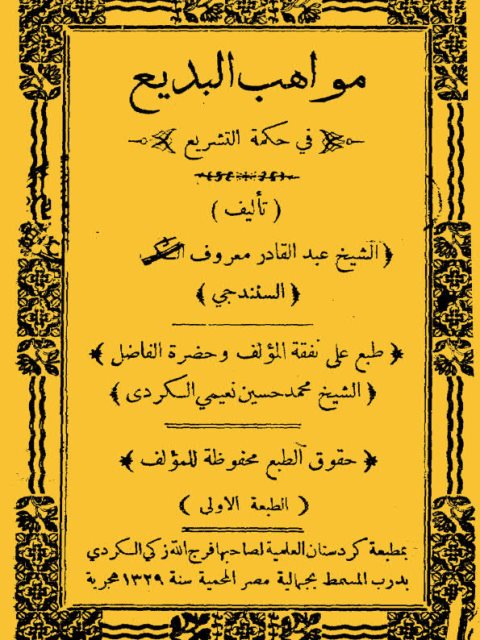 مواهب البديع
في حكمة التشريع
( تأليف )
﴿ الشيخ عبد القادر معروف
﴿ السنندجي ﴾
﴿ طبع على نفقة المؤلف وحضرة الفاضل ﴾
﴿ الشيخ محمد حسين نعيمي الكردى ﴾
﴿ حقوق الطبع محفوظة للمؤلف ﴾
( الطبعة الاولى )
بمطبعة كردستان العلمية لصاحبها فرج الله زكي الكردي
بدرب المسمط بجمالية مصر المحمية سنة ١٣٢٩ هجرية